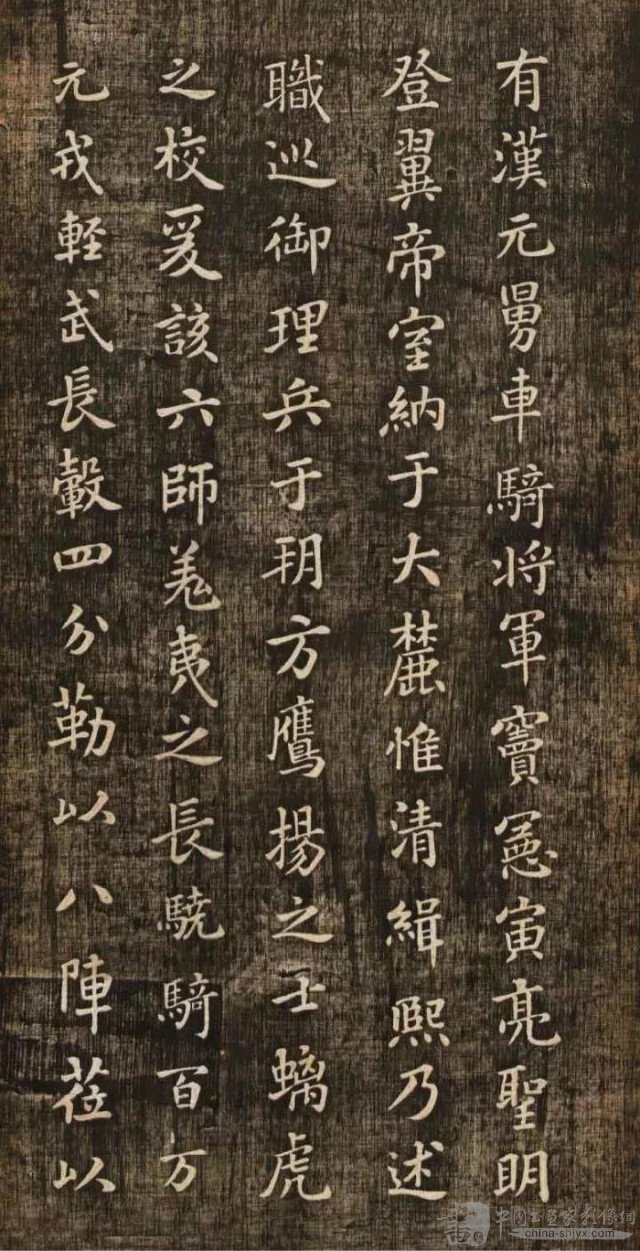 有漢元舅車騎将軍竇憲寅亮聖明
登翼帝室納于大麓惟清緝熙乃述
職巡御理兵于朔方鷹揚之士螭虎
之校爰該六師羌夷之長驍騎百万
元戎軽武長轂四分勒以八陣莅以
中國书画家影像網
china-shjyx.com